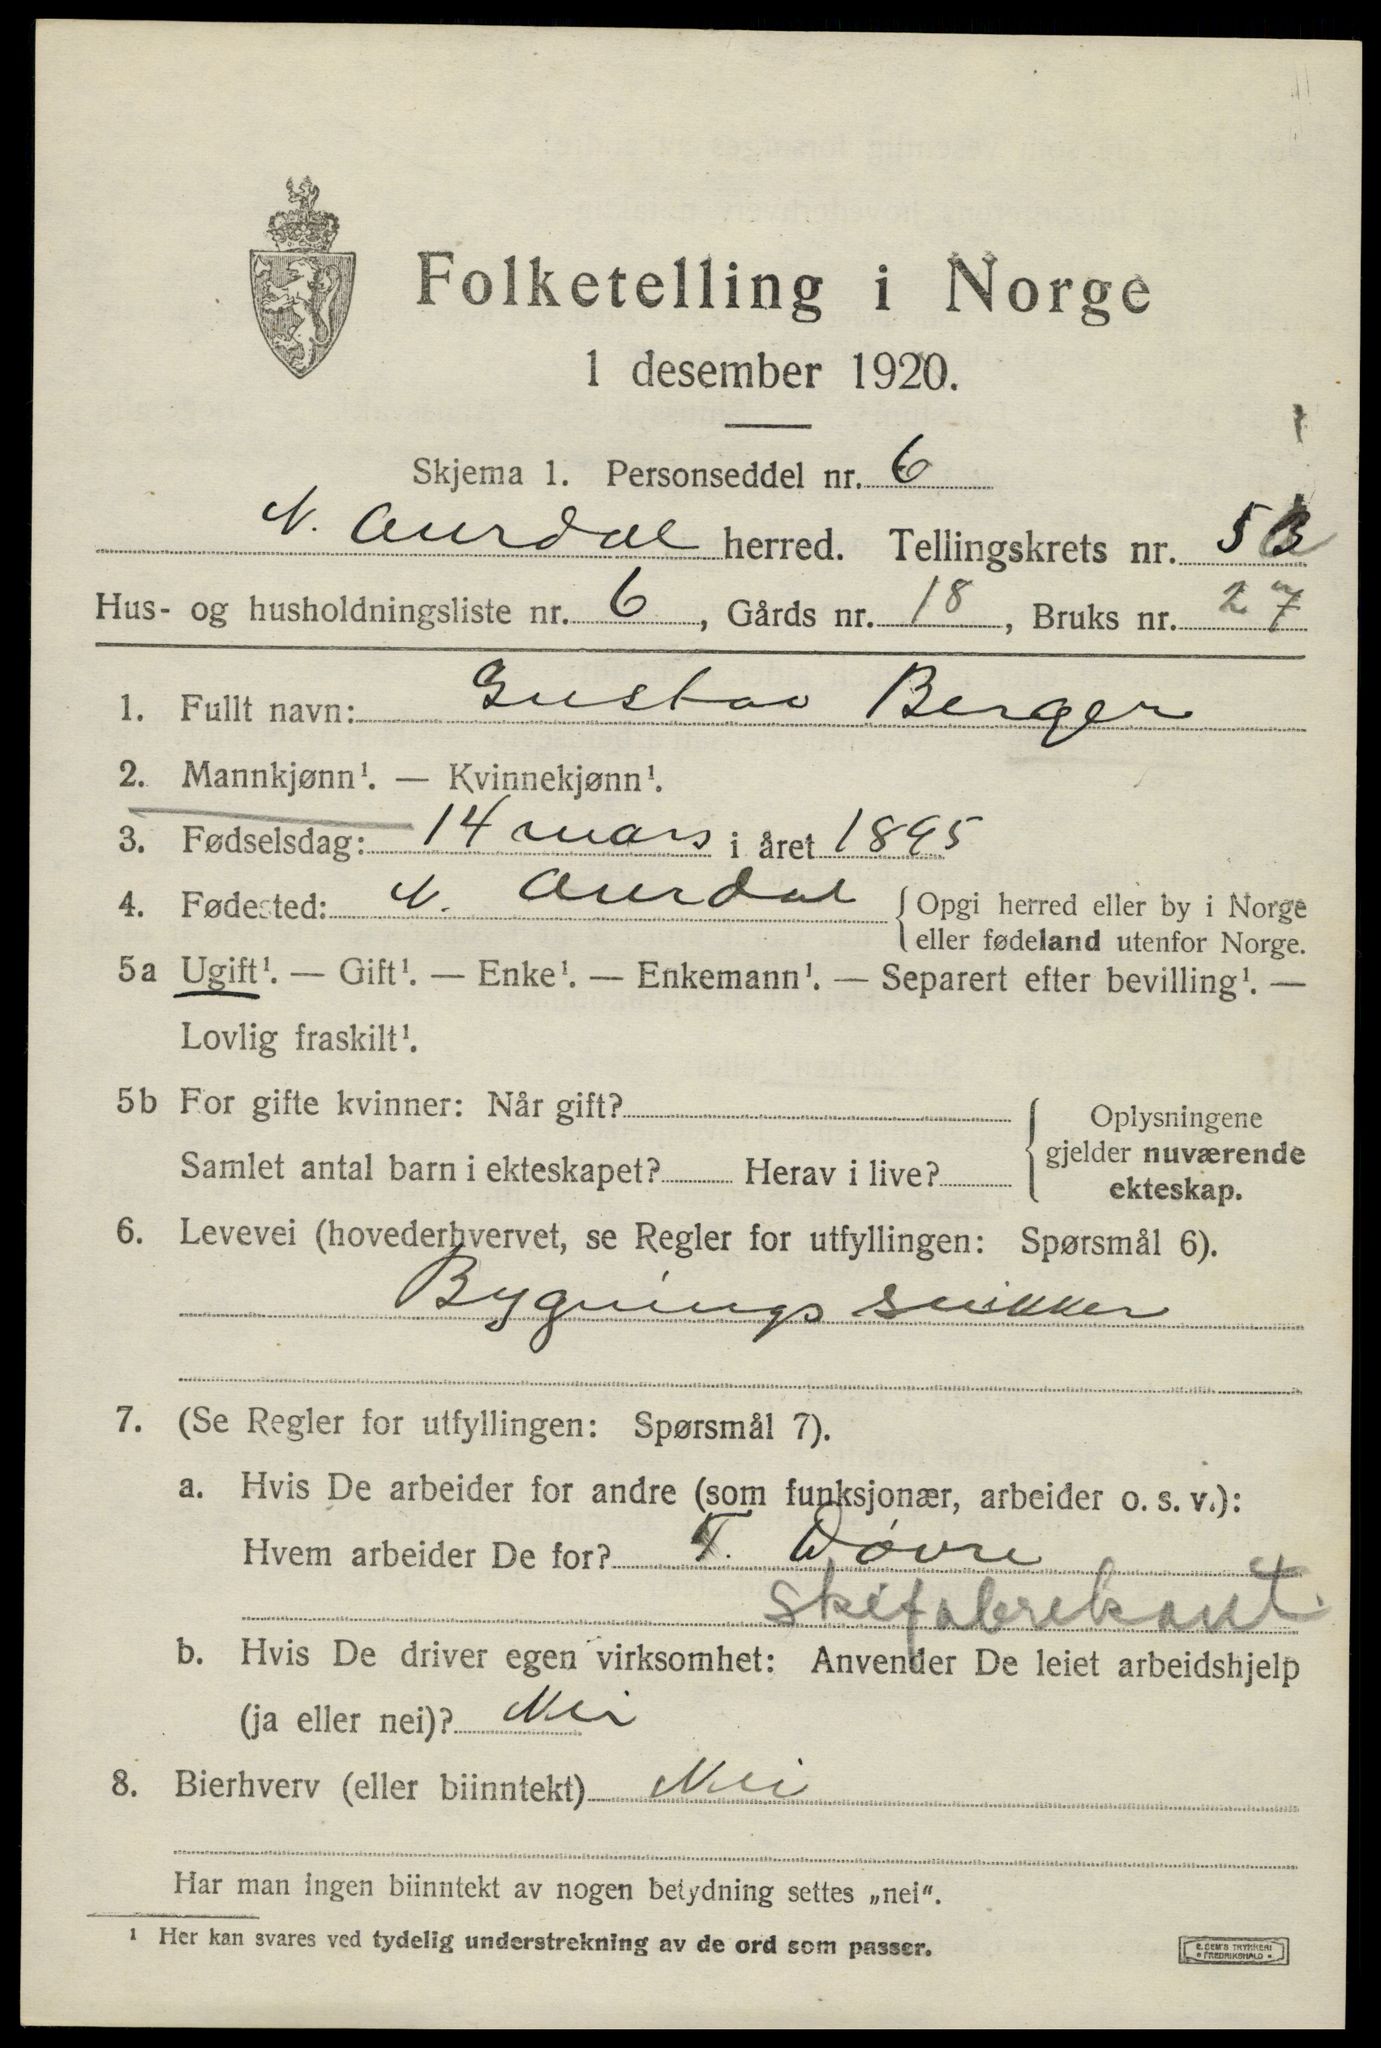 Folketelling i Norge
1 desember 1920.
Skjema 1. Personseddel nr. 6
N. Aurdal herred. Tellingskrets nr. 5B
Hus- og husholdningsliste nr. 6, Gårds nr. 18, Bruks nr. 27
1. Fullt navn: Gustav Berger
2. Mannkjønn¹. — Kvinnekjønn¹.
3. Fødselsdag: 14 mars i året 1895
4. Fødested: N. Aurdal {Opgi herred eller by i Norge
eller fødeland utenfor Norge.
5a Ugift¹. — Gift¹. — Enke¹. — Enkemann¹. — Separert efter bevilling¹. —
Lovlig fraskilt¹.
5b For gifte kvinner: Når gift?
Samlet antal barn i ekteskapet? Herav i live?
{Oplysningene
gjelder nuværende
ekteskap.
6. Levevei (hovederhvervet, se Regler for utfyllingen: Spørsmål 6).
Bygningssnikker
7. (Se Regler for utfyllingen: Spørsmål 7).
a. Hvis De arbeider for andre (som funksjonær, arbeider o. s. v.):
Hvem arbeider De for? T. Døvre
skifabrikant.
b. Hvis De driver egen virksomhet: Anvender De leiet arbeidshjelp
(ja eller nei)? Nei
8. Bierhverv (eller biinntekt) Nei
Har man ingen biinntekt av nogen betydning settes „nei“.
¹ Her kan svares ved tydelig understrekning av de ord som passer.
E. SEM'S TRYKKERI
FREDRIKSHALD